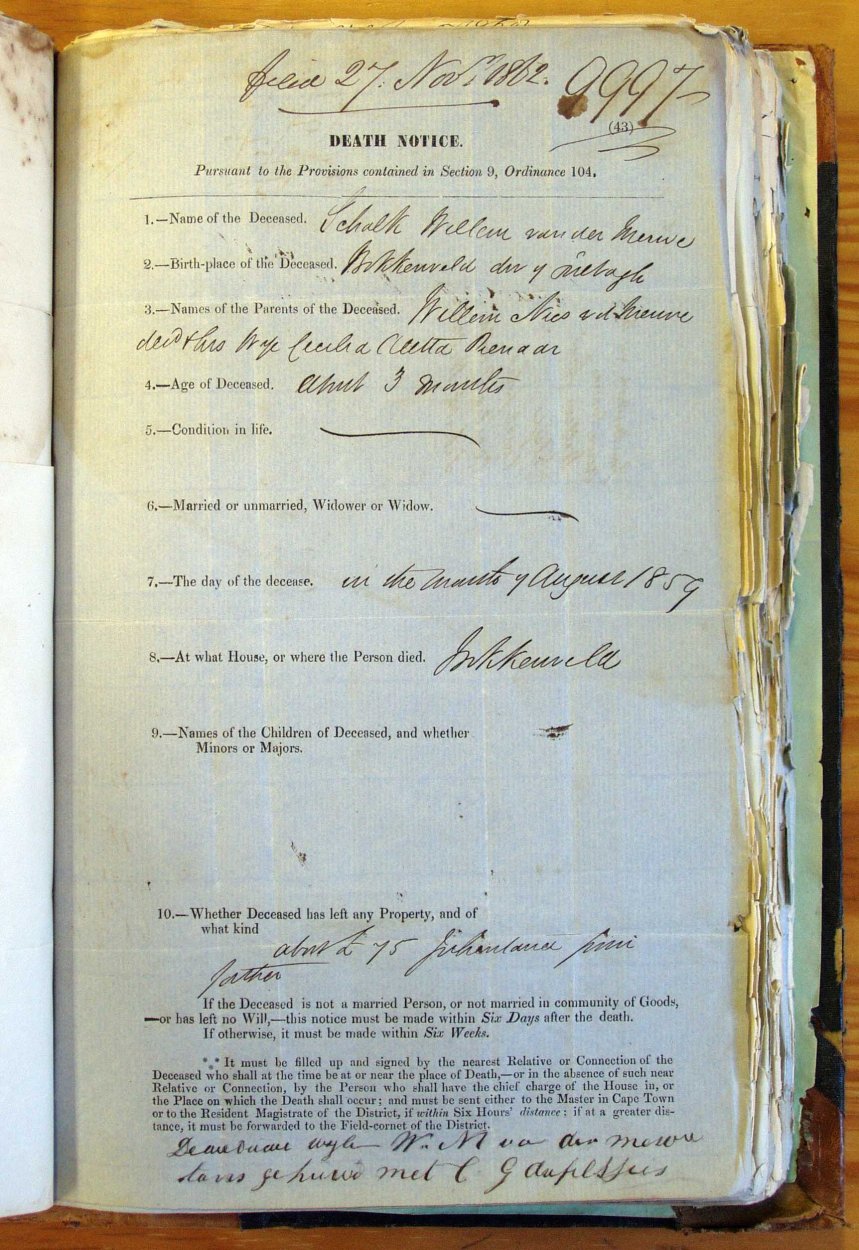 filed 27. Novr. 1862. 9997
(43)
DEATH NOTICE.
Pursuant to the Provisions contained in Section 9, Ordinance 104.
1.—Name of the Deceased. Schalk Willem van der Merwe
2.—Birth-place of the Deceased. Bokkeveld
3.—Names of the Parents of the Deceased. Willem Nics v d Merwe
decd & his Wife Cecilia Aletta Pienaar
4.—Age of Deceased. about 3 months
5.—Condition in life.
6.—Married or unmarried, Widower or Widow.
7.—The day of the decease. in the month of August 1859
8.—At what House, or where the Person died. Bokkeveld
9.—Names of the Children of Deceased, and whether
Minors or Majors.
10.—Whether Deceased has left any Property, and of
what kind
about £ 75
father
If the Deceased is not a married Person, or not married in community of Goods,
—or has left no Will,—this notice must be made within Six Days after the death.
If otherwise, it must be made within Six Weeks.
*** It must be filled up and signed by the nearest Relative or Connection of the
Deceased who shall at the time be at or near the place of Death,—or in the absence of such near
Relative or Connection, by the Person who shall have the chief charge of the House in, or
the Place on which the Death shall occur; and must be sent either to the Master in Cape Town
or to the Resident Magistrate of the District, if within Six Hours' distance: if at a greater dis-
tance, it must be forwarded to the Field-cornet of the District.
W. N van der merwe
tans gehuwd met C G duplessies